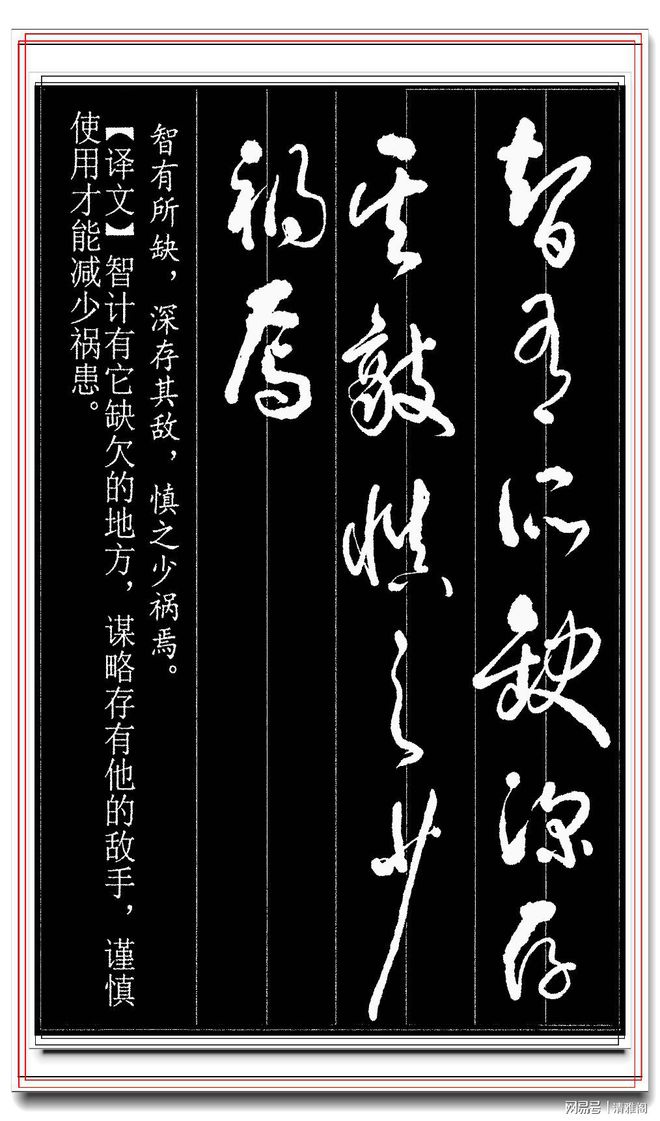 智有所缺深存
其敌慎之少
祸焉
智有所缺，深存其敌，慎之少祸焉。
【译文】智计有它缺欠的地方，谋略存有他的敌手，谨慎
使用才能减少祸患。
网易号|清雅阁